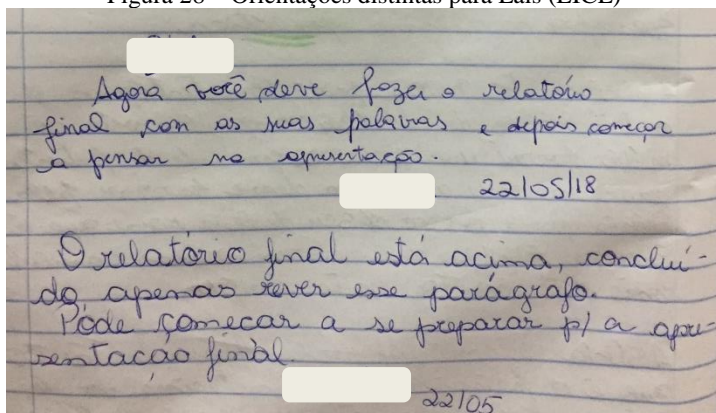 Figura 28 – Orientações distintas para Laís (EICE)
Agora você deve fazer o relatório
final com as suas palavras e depois começar
a pensar na apresentação.
22/05/18
O relatório final está acima, conclui-
do apenas rever esse parágrafo.
Pode começar a se preparar p/ a apre-
sentação final.
22/05